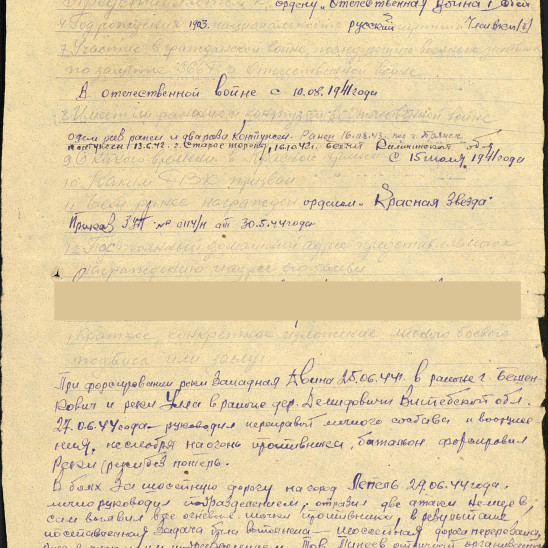 ордену „Отечественная Война I степ
4 Год рождения 1903. национальность русский Член ВКП(б)
7. Участие в гражданской войне, последующих боевых действиях
по защите СССР и Отечественной войне
В отечественной войне с 10.08.1941 года
8. Имеет ли ранения и контузии в отечественной войне
один раз ранен и два раза контужен. Ранен 16.08.43.
контужен 13.6.42. г. Старое 16.10.42. Калининской обл.
9. С какого времени в Красной армии С 15 июля 1941 года
10. Каким РВК призван
11. Чем ранее награжден орденом „Красная Звезда"
Приказ № 0114/н от 30.5.44 года
12. Постоянный домашний адрес представляемого
к награждению и адрес его семьи
Краткое, конкретное изложение личного боевого
подвига или заслуг
При форсировании реки Западная Двина 25.06.44 г. в районе г. Бешен
Кович и реки Улла в районе дер. Демидовичи Витебской обл.
27.06.44 года руководил переправой личного состава и вооруже
ния, несмотря на огонь противника, батальон форсировал
реки без потерь.
В боях за шоссейную дорогу на город Лепель 27.06.44 года,
лично руководил подразделением, отразил две атаки немцев,
сам выявил все огневые точки противника, в результате
поставленная задача была выполнена – шоссейная дорога перерезана,